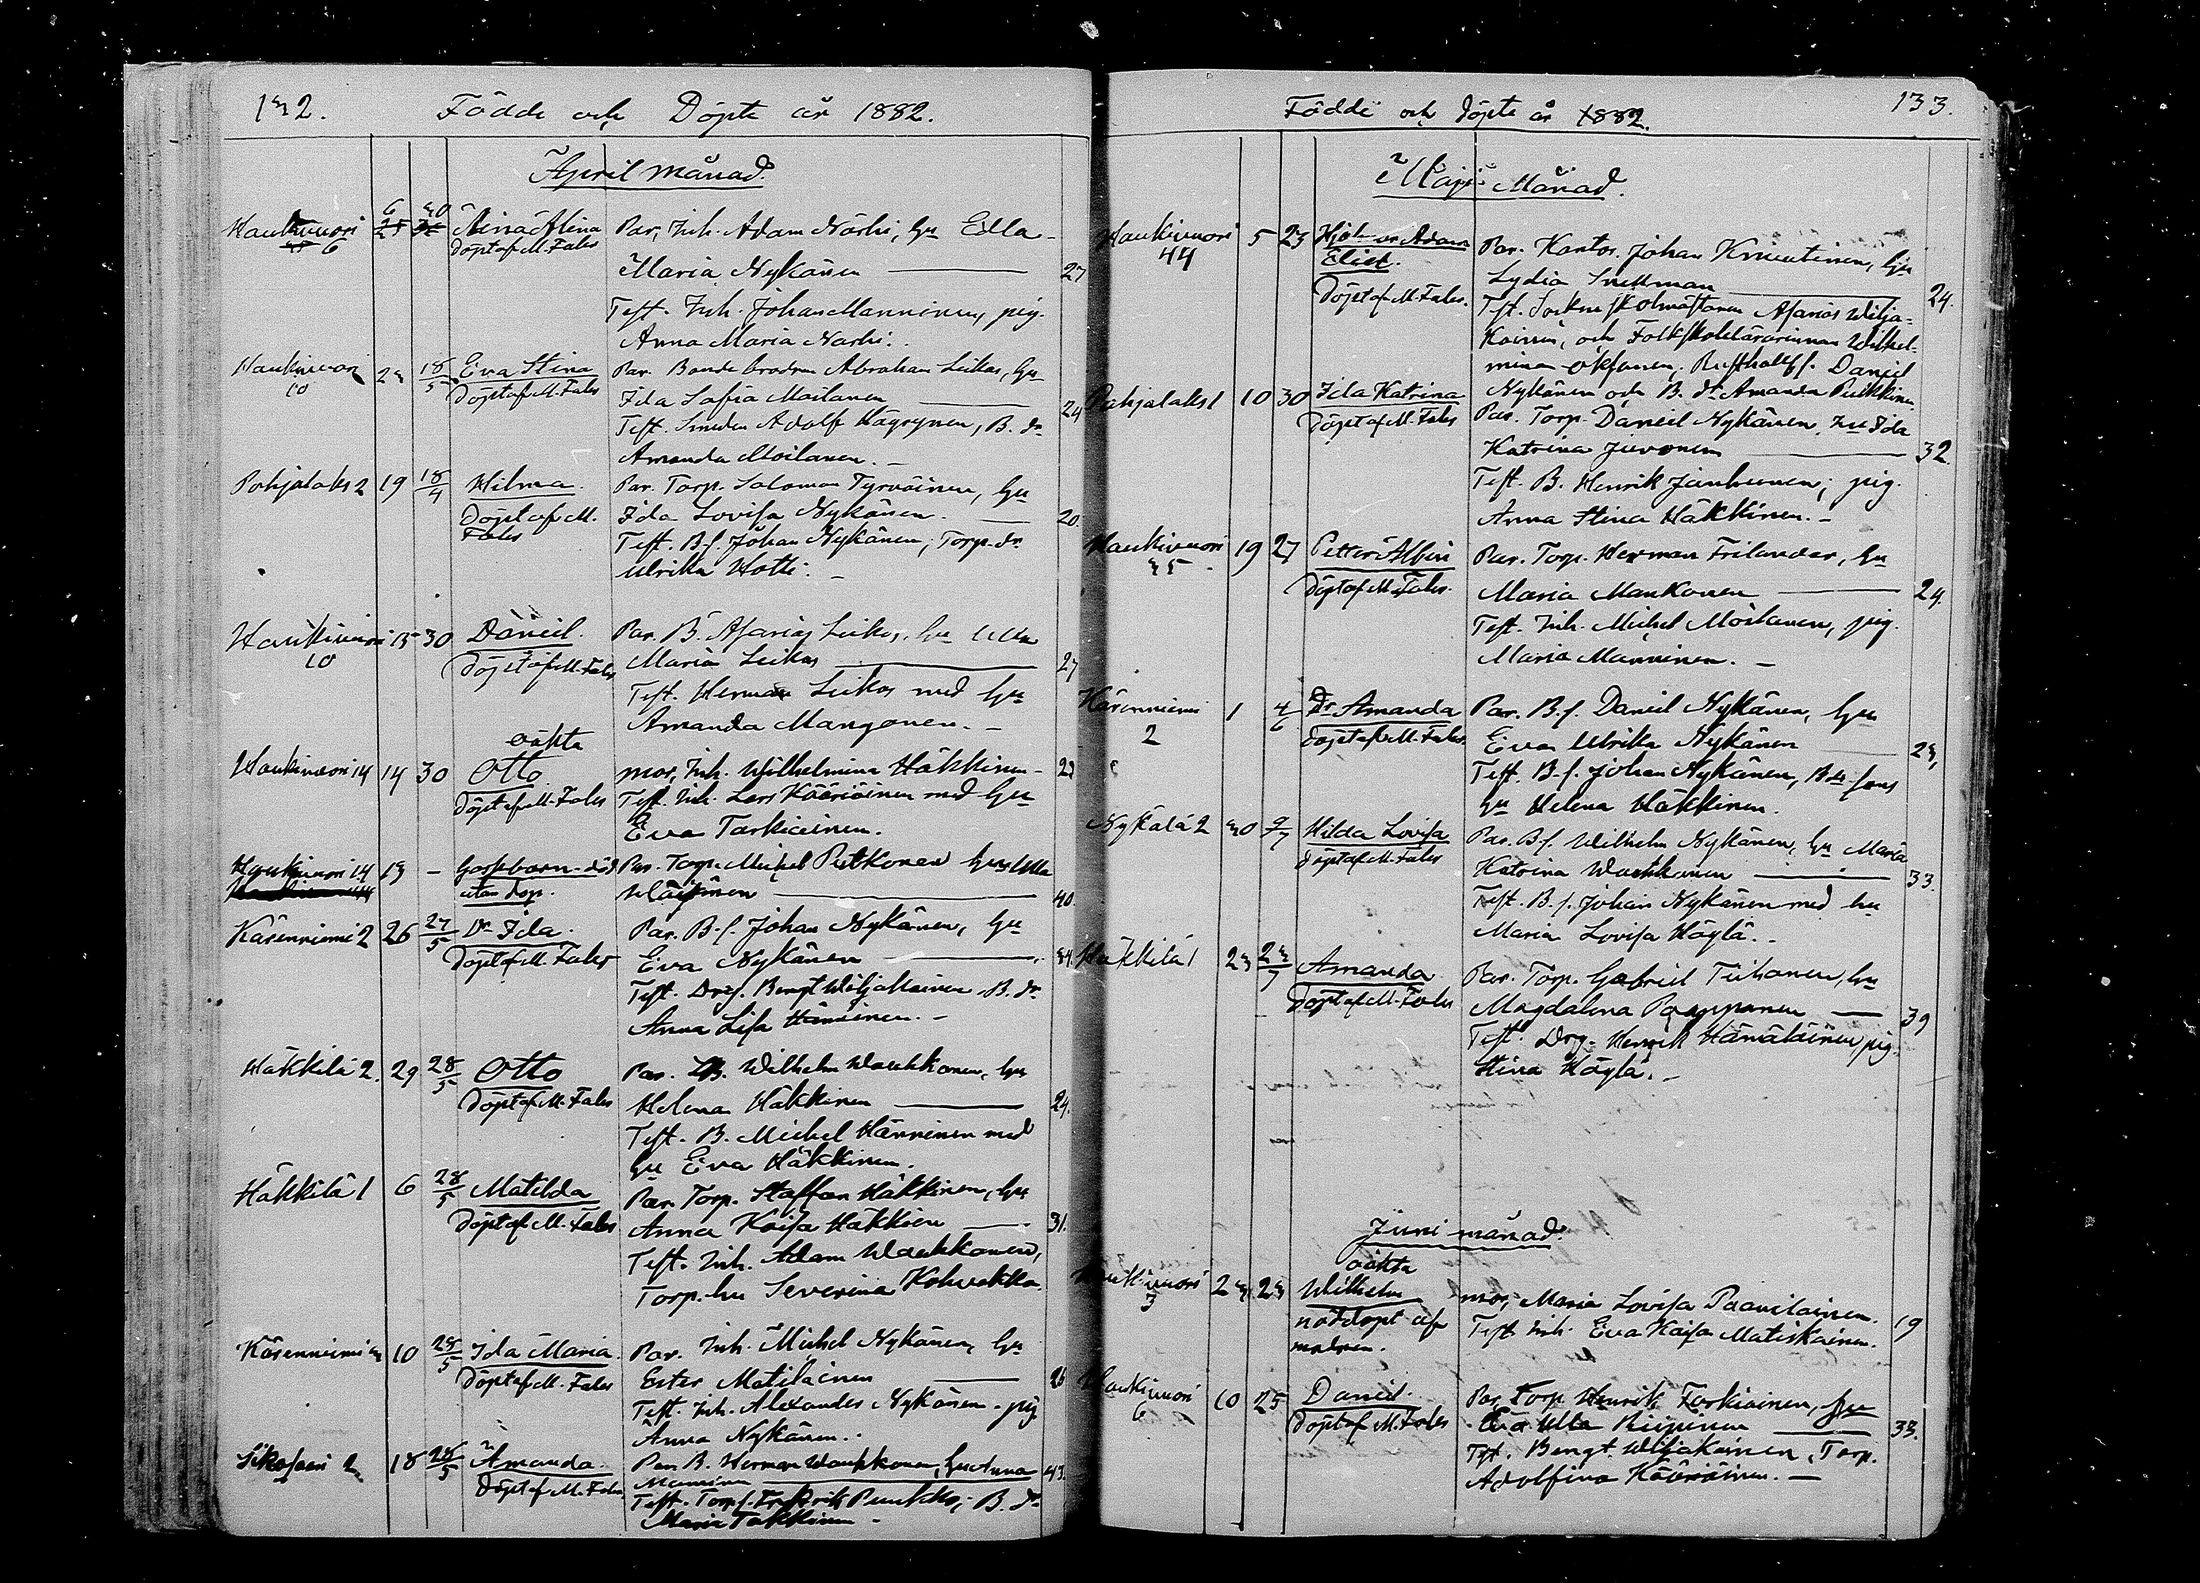 132. Födde och Döpte år 1882.
April månad.
Haukivuori 6 Aina Alina
Döpt af M. Fales
Par. Inh. Adam Närhi, hu
Maria Nykänen 27
Test. Inh. Johan Manninen, pig.
Anna Maria Narhi.
Haukivuori 10 23 18/5 Eva Stina
Döpt af M. Fales
Par. Bonde brodren Abraham Leikas, hu
Ida Sofia Moilanen 24
Test. Smeden Adolf Käyrynen, B. dr
Amanda Moilanen. –
Pohjalaks 2 19 18/4 Hilma.
Döpt af M. Fales
Par. Torp. Salomon Tyrväinen, hu
Ida Lovisa Nykänen. 20.
Test. B. s. Johan Nykänen; Torp. dr
Ulrika Hotti. –
Haukivuori 10 15 30 Daniel.
Döpt af M. Fales
Par. B. Asarias Leikas, hu Ulla
Maria Leikas 27
Test. Herman Leikas med hu
Amanda Manganen. –
Haukivuori 14 14 30 oäkta
Otto
Döpt af M. Fales
mor, Inh. Wilhelmina Häkkinen 22
Test. Inh. Lars Kääriäinen med hu
Eva Tarkiainen.
Haukivuori 14 13 – Gossbarn död
utan dop.
Par. Torp. Michel Pulkkonen hu Ulla
Väisänen 40
Käsenniemi 2 26 27/5 Dr Ida.
Döpt af M. Fales
Par. B. s. Johan Nykänen, hu
Eva Nykänen 34.
Test. Drg. Bengt Wiljakainen, B. dr
Anna Lisa Hänninen. –
Häkkilä 2. 29 28/5 Otto
Döpt af M. Fales
Par. B. Wilhelm Waukkonen, hu
Helena Häkkinen 24.
Test. B. Michel Hänninen med
hu Eva Häkkinen.
Häkkilä 1 6 28/5 Matilda
Döpt af M. Fales
Par. Torp. Staffan Häkkinen, hu
Anna Kaisa Häkkien 31.
Test. Inh. Adam Waukkonen,
Torp. hu Severina Kohvakka.
Käsenniemi 3 10 28/5 Ida Maria.
Döpt af M. Fales
Par. Inh. Michel Nykänen, hu
Ester Matilainen 26
Test. Inh. Alexander Nykänen. pig.
Anna Nykänen.
Sikosaari 2 18 28/5 Amanda.
Döpt af M. Fales.
Par. B. Herman Waukkonen, hu Anna
Manninen 43.
Test. Torp. s. Fredrik Puukko; B. dr
Maria Takkinen –
Födde och döpte år 1882. 133.
Maji Månad.
Haukivuori 44 5 23 Adam
Döpt af M. Fales.
Par. Kantor. Johan Knuutinen, hu
Lydia Snellman 24.
Test. Sockneskolmästaren Asarias Wilja-
kainen, och Folkskolelärarinnan Wilhel-
mina Daniel
Nykänen och B. dr Amanda Pulkkinen.
Pohjalaks 1 10 30 Ida Katrina
Döpt af M. Fales
Par. Torp. Daniel Nykänen, hu Ida
Katrina Juvonen 32.
Test. B. Henrik Janhunen; pig.
Anna Stina Häkkinen. –
Haukivuori 35 19 27 Petter Albin
Döpt af M. Fales.
Par. Torp. Herman Frilander, hu
Maria Maukonen 24.
Test. Inh. Michel Moilanen, pig.
Maria Manninen. –
Käsenniemi 2 1 4/6 Dr Amanda
Döpt af M. Fales.
Par. B. s. Daniel Nykänen, hu
Eva Ulrika Nykänen 23,
Test. B. s. Johan Nykänen, sons
hu Helena Häkkinen.
Nykälä 2 30 9/7 Hilda Lovisa
Döpt af M. Fales
Par. B. s. Wilhelm Nykänen, hu Maria
Katrina Waukkonen 33.
Test. B. s. Johan Nykänen med hu
Maria Lovisa Höylä.
Häkkilä 1 23 23/7 Amanda
Döpt af M. Fales
Par. Torp. Gabriel Tiihonen, hu
Magdalena Pamppunen 39
Test. Drg. Henrik Hämäläinen pig.
Stina Höylä. –
Juni månad.
Haukivuori 3 23 23 oäkta
Wilhelm
nöddöpt af
modren.
mor, Maria Lovisa Paanilainen. 19
Test. Inh. Eva Kaisa Matiskainen.
Haukivuori 6 10 25 Daniel.
Döpt af M. Fales
Par. Torp. Henrik Tarkiainen, hu
Eva Ulla Riipinen 33.
Test. Bengt Wiljakainen, Torp.
Adolfina Kääriäinen. –